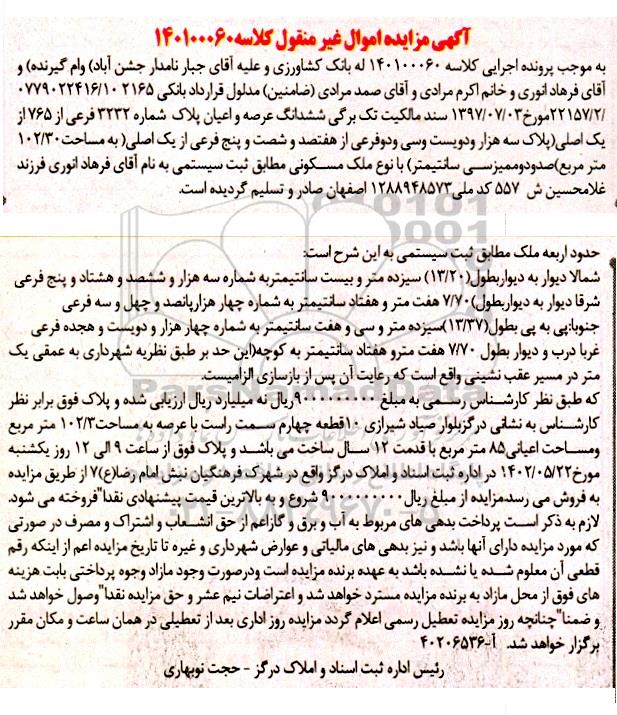 آگهی مزایده اموال غیر منقول کلاسه۱۴۰۱۰۰۰۶۰
به موجب پرونده اجرایی کلاسه ۱۴۰۱۰۰۰۶۰ له بانک کشاورزی و علیه آقای جبار نامدار جشن آباد) وام گیرنده) و
آقای فرهاد انوری و خانم اکرم مرادی و آقای صمد مرادی (ضامنین) مدلول قرارداد بانکی ۲۱۶۵ ۰۷۷۹۰۲۲۴۱۶/۱۰
/۲۲۱۵۷/۲مورخ۱۳۹۷/۰۷/۰۳ سند مالکیت تک برگی ششدانگ عرصه و اعیان پلاک شماره ۳۲۳۲ فرعی از ۷۶۵ از
یک اصلی(پلاک سه هزار ودویست وسی ودوفرعی از هفتصد و شصت و پنج فرعی از یک اصلی( به مساحت۱۰۲/۳۰
متر مربع)صدودوممیزسی سانتیمتر) با نوع ملک مسکونی مطابق ثبت سیستمی به نام آقای فرهاد انوری فرزند
غلامحسین ش ۵۵۷ کد ملی۱۲۸۸۹۴۸۵۷۳ اصفهان صادر و تسلیم گردیده است.
حدود اربعه ملک مطابق ثبت سیستمی به این شرح است:
شمالا دیوار به دیواربطول(۱۳/۲۰) سیزده متر و بیست سانتیمتربه شماره سه هزار و ششصد و هشتاد و پنج فرعی
شرقا دیوار به دیواربطول)۷/۷۰ هفت متر و هفتاد سانتیمتر به شماره چهار هزارپانصد و چهل و سه فرعی
جنوبا:پی به پی بطول(۱۳/۳۷)سیزده متر و سی و هفت سانتیمتر به شماره چهار هزار و دویست و هجده فرعی
غربا درب و دیوار بطول ۷/۷۰ هفت مترو هفتاد سانتیمتر به کوچه(این حد بر طبق نظریه شهرداری به عمقی یک
متر در مسیر عقب نشینی واقع است که رعایت آن پس از بازسازی الزامیست.
که طبق نظر کارشناس رسمی به مبلغ۹۰۰۰۰۰۰۰۰۰ریال نه میلیارد ریال ارزیابی شده و پلاک فوق برابر نظر
کارشناس به نشانی درگزبلوار صیاد شیرازی ۱۰قطعه چهارم سمت راست با عرصه به مساحت۱۰۲/۳ متر مربع
ومساحت اعیانی۸۵ متر مربع با قدمت ۱۲ سال ساخت می باشد و پلاک فوق از ساعت ۹ الی ۱۲ روز یکشنبه
مورخ۱۴۰۲/۰۵/۲۲ در اداره ثبت اسناد و املاک درگز واقع در شهرک فرهنگیان نبش امام رضا(ع)۷ از طریق مزایده
به فروش می رسدمزایده از مبلغ ریال۹۰۰۰۰۰۰۰۰۰ شروع و به بالاترین قیمت پیشنهادی نقدا"فروخته می شود.
لازم به ذکر است پرداخت بدهی های مربوط به آب و برق و گازاعم از حق انشعاب و اشتراک و مصرف در صورتی
که مورد مزایده دارای آنها باشد و نیز بدهی های مالیاتی و عوارض شهرداری و غیره تا تاریخ مزایده اعم از اینکه رقم
قطعی آن معلوم شده یا نشده باشد به عهده برنده مزایده است ودرصورت وجود مازاد وجوه پرداختی بابت هزینه
های فوق از محل مازاد به برنده مزایده مسترد خواهد شد و اعتراضات نیم عشر و حق مزایده نقدا"وصول خواهد شد
و ضمنا"چنانچه روز مزایده تعطیل رسمی اعلام گردد مزایده روز اداری بعد از تعطیلی در همان ساعت و مکان مقرر
برگزار خواهد شد. آ-۴۰۲۰۶۵۳۶
رئیس اداره ثبت اسناد و املاک درگز - حجت نوبهاری
ParsNamadData
۰۲۱-۸۸۳۴۹۶۷۰-۵